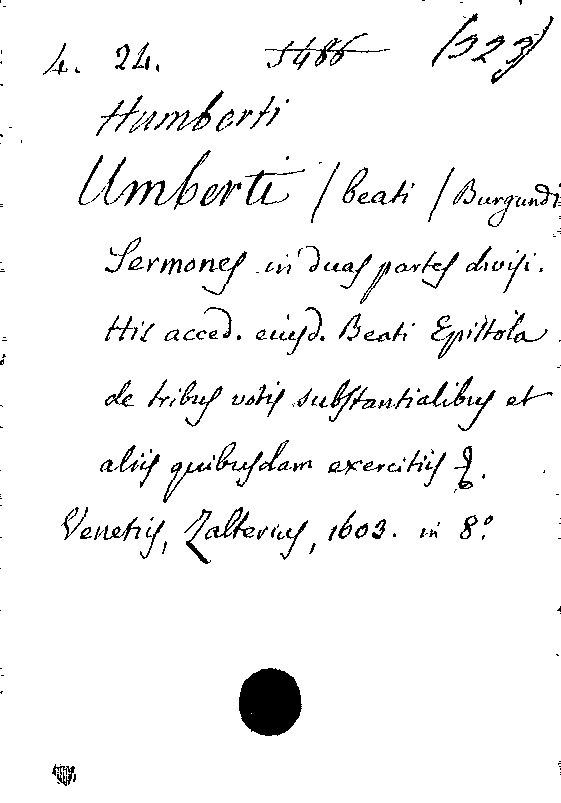 4. 24. 5486 (323)
Humberti
Umberti / beati / Burgundi
Sermones in duas partes divisi.
His acced. eiusd. Beati Epistola
de tribus votis substantialibus et
aliis quibusdam exercitiis
Venetiis, Zalterius, 1603. in 8º.